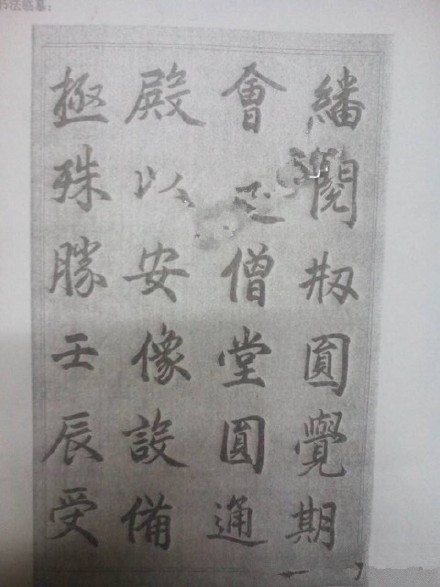 书法临摹：
繙閱刱圓覺期
會僧堂圓通
殿以安像設備
極殊勝壬辰受